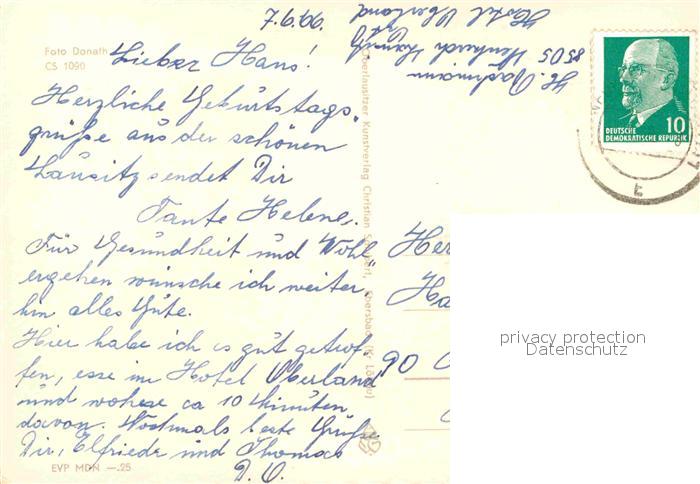 7.6.66.
Foto Donath
CS 1090
Lieber Hans!
Herzliche Geburtstags-
grüße aus der schönen
Lausitz sendet Dir
Tante Helene.
Für Gesundheit und Wohl-
ergehen wünsche ich weiter-
hin alles Gute.
Hier habe ich es gut getrof-
fen, esse im Hotel Oberland
und wohne ca 10 Minuten
davon. Nochmals beste Grüße
Dir, Elfriede und Thomas
D. O.
EVP MDN —.25
8505
Hotel Oberland
Oberlausitzer Kunstverlag Christian Ebersbach
10
DEUTSCHE
DEMOKRATISCHE REPUBLIK
Her
Ha
90
privacy protection
Datenschutz